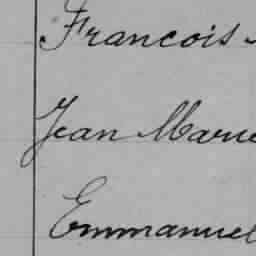 Francois
Jean Marie
Emmanuel